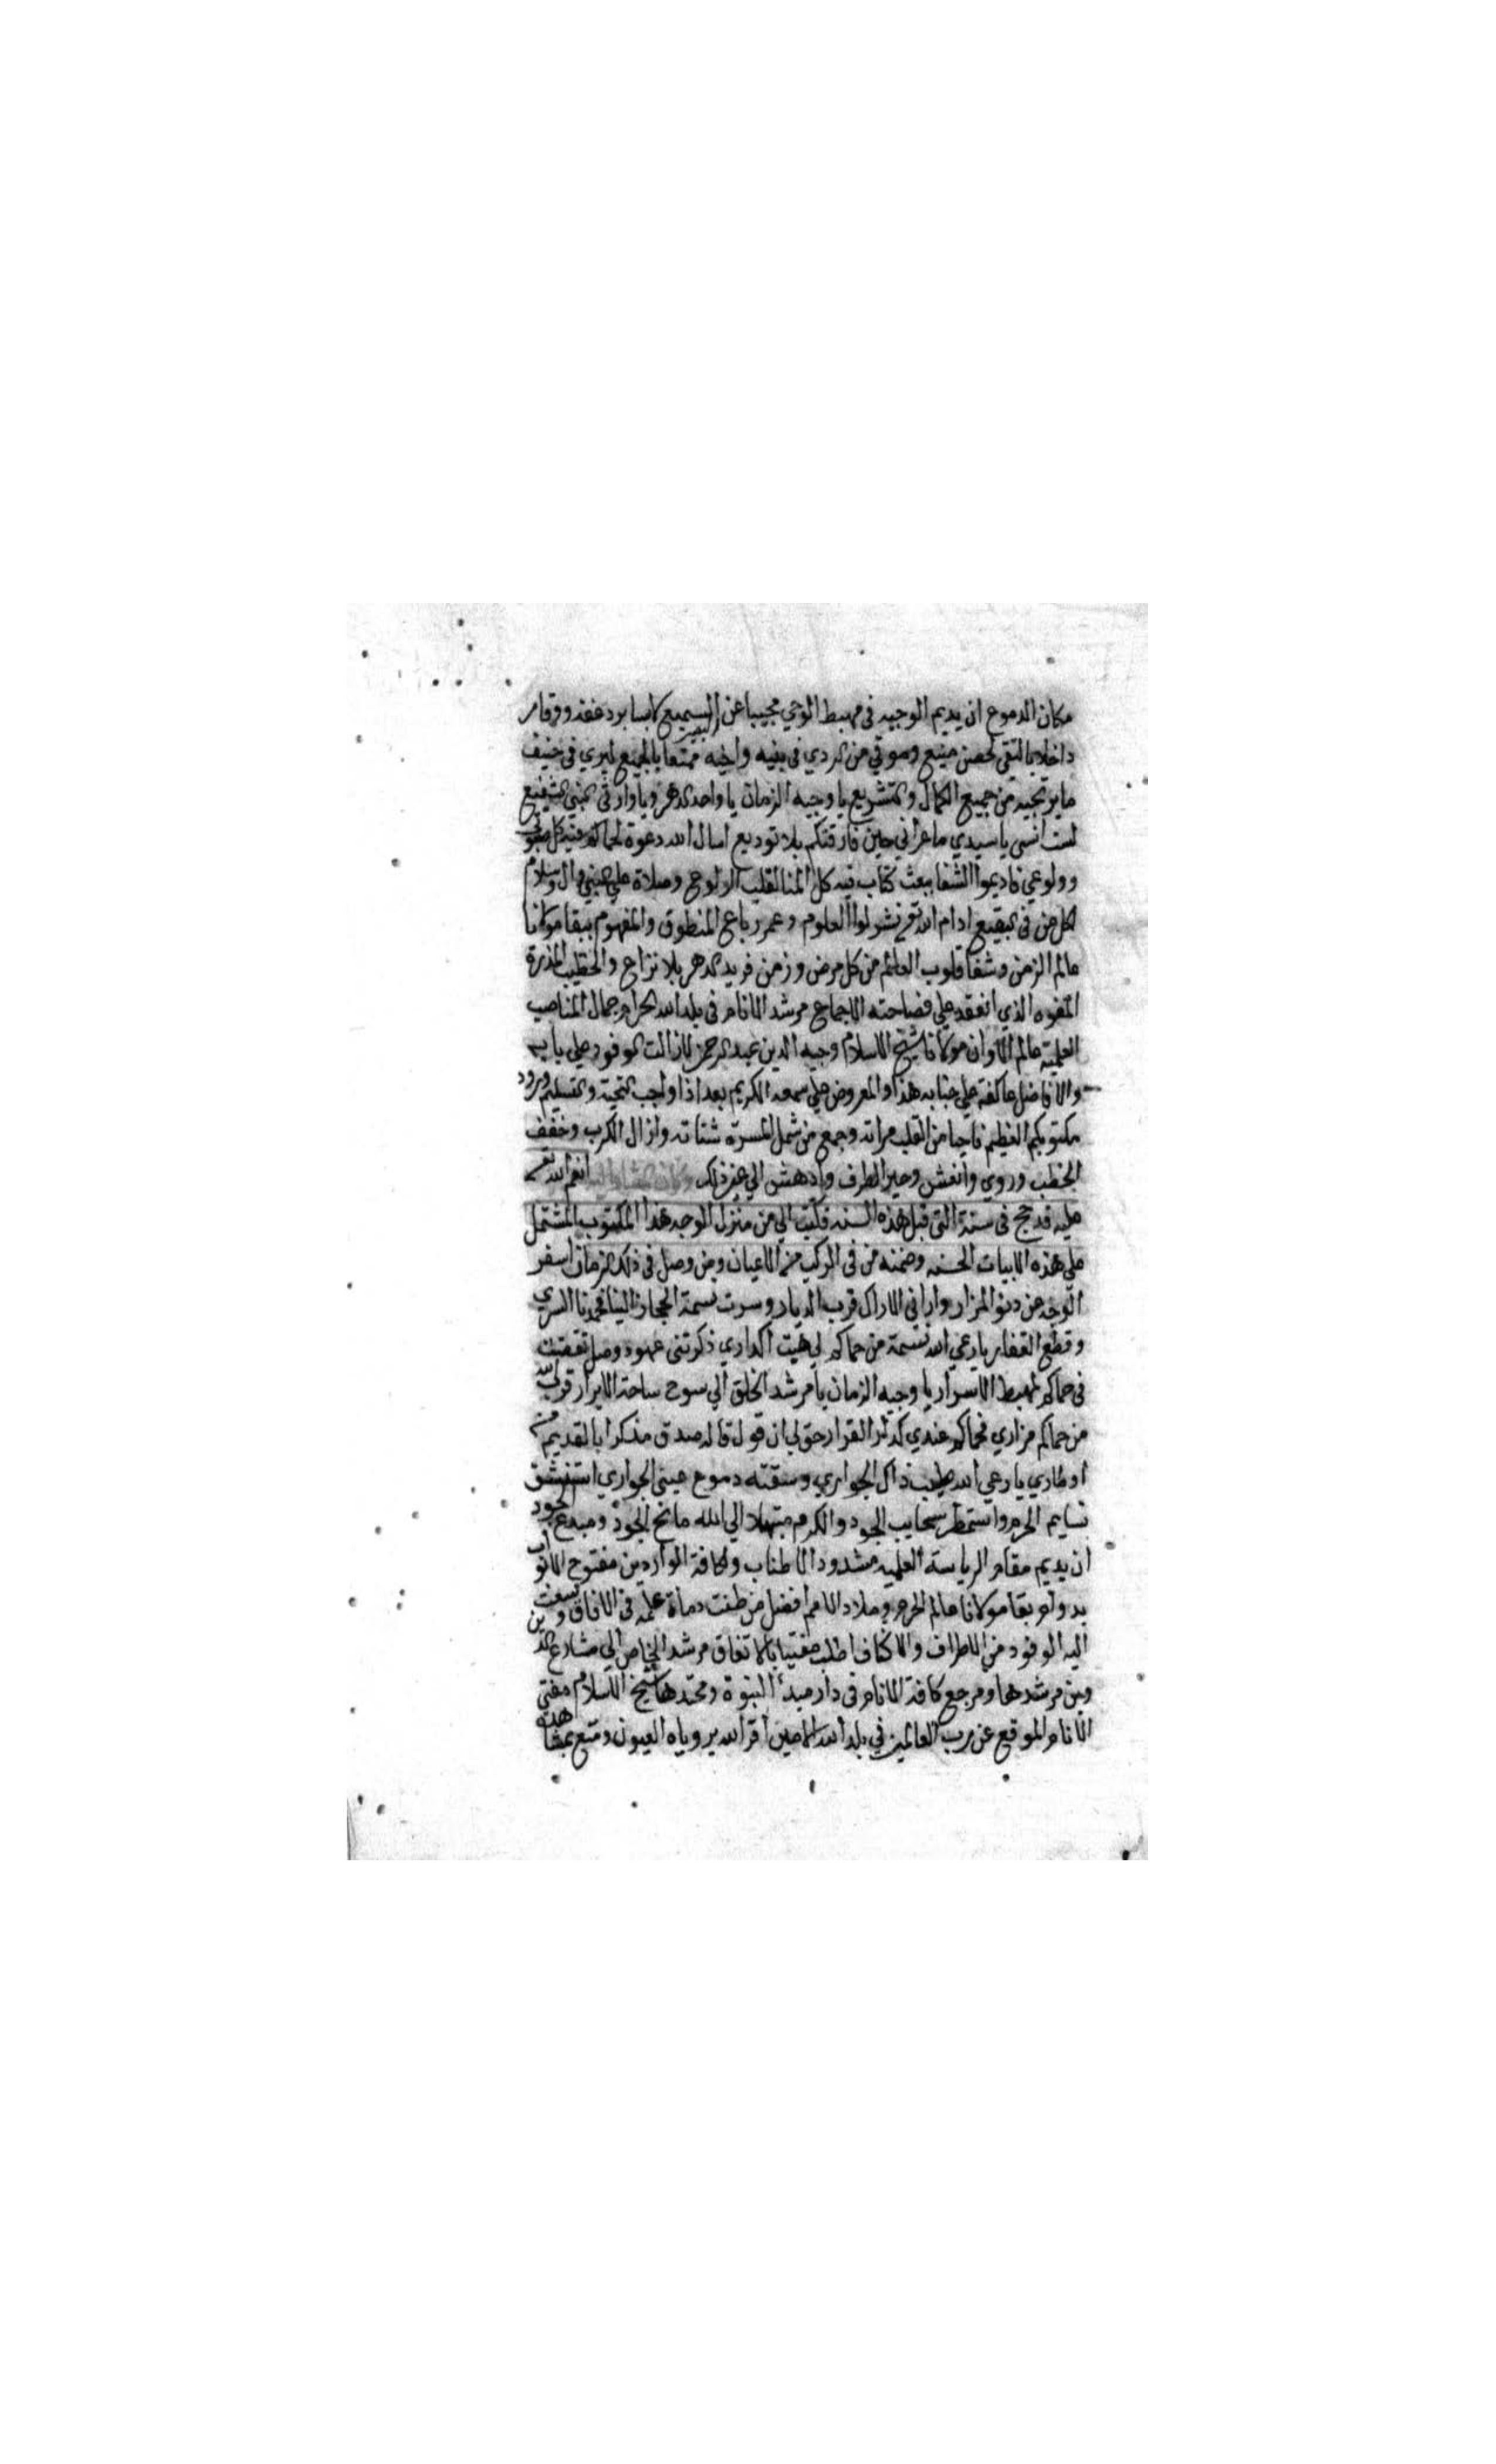 مكان الدموع ان يديم الوجيه في مهبط الوحي مجيبا عن البشير السميع لابسا برد عفة ووقار
داخلا بالتقي لحصن منيع وموقي من الردي في بنيه واخيه ممتعا بالجميع ليري في
ما يرتجيه من جميع الكمال والتشريع يا وجيه الزمان يا واحد الدهر ويا وارث النبي الشفيع
لست انسي يا سيدي ما عراني حين فارقتكم بلا توديع اسال الله دعوة لحماكم فيه كل
وولوعي فاديموا الشفا ببعث كتاب فيه كل المنا لقلب الولوع وصلاة علي النبي وال وسلام
لكل من في البقيع ادام الله تع نشر لواا العلوم وعمر رباع المنطوق والمفهوم ببقا مولانا
عالم الزمن وشفا قلوب العالم من كل مرض وزمن فريد الدهر بلا نزاع والخطيب المذره
المفوه الذي انعقد علي فصاحته الاجماع مرشد الانام في بلد الله الحرام جمال المناصب
العلمية عالم الاوان مولانا شيخ الاسلام وجيه الدين عبد الرحمن لا زالت الوفود علي بابه
والافاضل عاكفة علي جنابه هذا والمعروض علي سمعه الكريم بعد اداا واجب التحية والتسليم ورود
مكتوبكم العظيم من القلب مراته وجمع من شمل المسرة شتاته وازال الكرب وخفف
الخطب وروي وانعش وحير الطرف وادهش الي غير ذلك وكان انعم الله تع
عليه قد حج في سنة التي قبل هذه السنه فكتب الي من منزل الوجه هذا المكتوب المشتمل
علي هذه الابيات الحسنه وضمنه من في الركب من الاعيان ومن وصل في ذلك الزمان اسفر
الوجه عن دنو المزار واراني الاراك قرب الديار وسرت نسمة الحجاز الينا فحمدنا السري
وقطع القفار يا رعي الله نسمة من حماكم لي هيت ادكاري ذكرتني عهود وصل تقضت
في حماكم لمهبط الاسرار يا وجيه الزمان يا مرشد الخلق الي سوح ساحة الابرار قرب الله
من حماكم مزاري فحماكم عندي كدار القرار حق لي ان قول قاله صدق مذكرا بالقديم من
اوطاري يا رعي الله طيب ذاك الجوار وسقته دموع عيني الجواري استنشق
نسايم الحرم واستمطر سحايب الجود والكرم مبتهلا الي الله مانح الجود ومبدع الوجود
ان يديم مقام الرياسة العلميه مشدود الاطناب ولكافة الواردين مفتوح الابواب
بدوام بقا مولانا عالم الحرم وملاد الامم افضل من طنت دماة علمه في الافاق وسعت
اليه الوفود من الاطراف والاكناف اطلب مفتيا بالاتفاق مرشد الخاص الي مشارع الدين
وبن مرشدها ومرجع كافة الانام في دار مبدء النبوة ومحتدها شيخ الاسلام مفتي
الانام الموقع عن رب العالمين في بلد الله الامين اقر الله بروياه العيون ومتع بمشاهدته